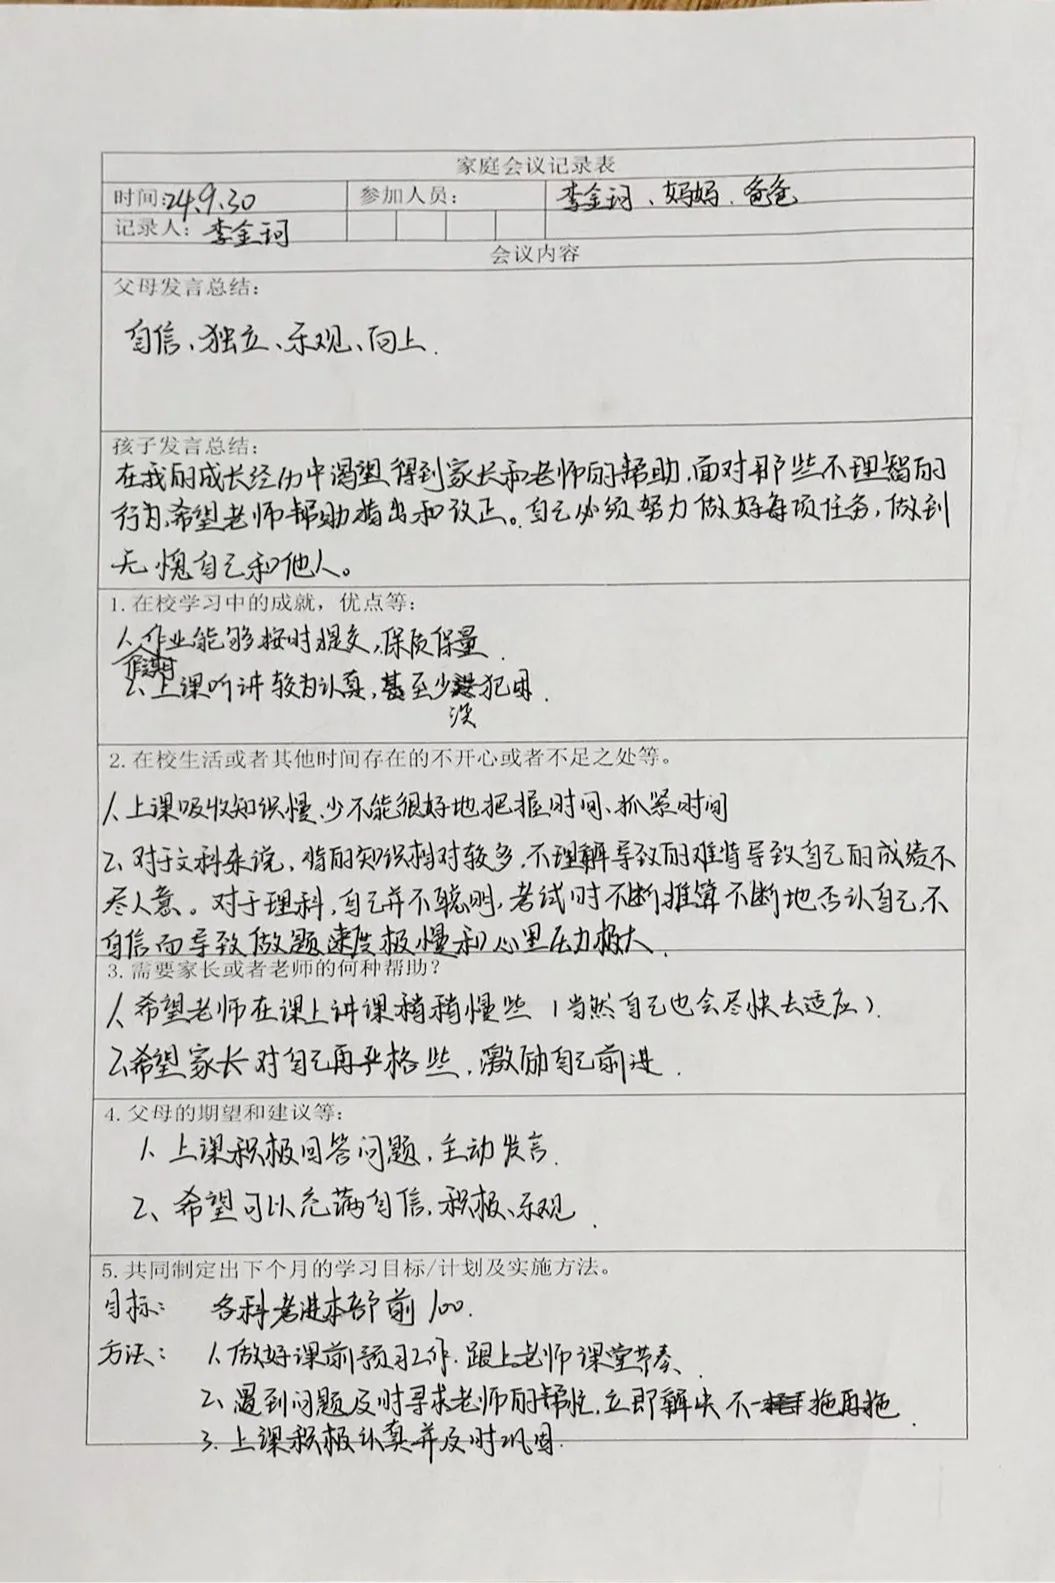 家庭会议记录表
时间:24.9.30 参加人员: 李金珂、妈妈、爸爸
记录人: 李金珂
会议内容
父母发言总结:
自信、独立、乐观、向上.
孩子发言总结:
在我的成长经历中渴望得到家长和老师的帮助,面对那些不理智的
行为,希望老师帮助指出和改正。自己必须努力做好每项任务,做到
无愧自己和他人。
1.在校学习中的成就,优点等:
1、作业能够按时提交,保质保量.
2、上课听讲较为认真,甚至少没犯困.
2.在校生活或者其他时间存在的不开心或者不足之处等。
1、上课吸收知识慢、少不能很好地把握时间、抓紧时间
2、对于文科来说,背的知识相对较多,不理解导致的难背导致自己的成绩不
尽人意。对于理科,自己并不聪明,考试时不断推算不断地否认自己,不
自信而导致做题速度极慢和心里压力极大.
3.需要家长或者老师的何种帮助?
1、希望老师在课上讲课稍稍慢些(当然自己也会尽快去适应).
2、希望家长对自己再严格些,激励自己前进.
4.父母的期望和建议等:
1、上课积极回答问题,主动发言.
2、希望可以充满自信,积极、乐观.
5.共同制定出下个月的学习目标/计划及实施方法。
目标: 各科考进本部前100.
方法: 1、做好课前预习工作.跟上老师课堂节奏.
2、遇到问题及时寻求老师的帮忙,立即解决不一拖再拖.
3.上课积极认真并及时巩固.